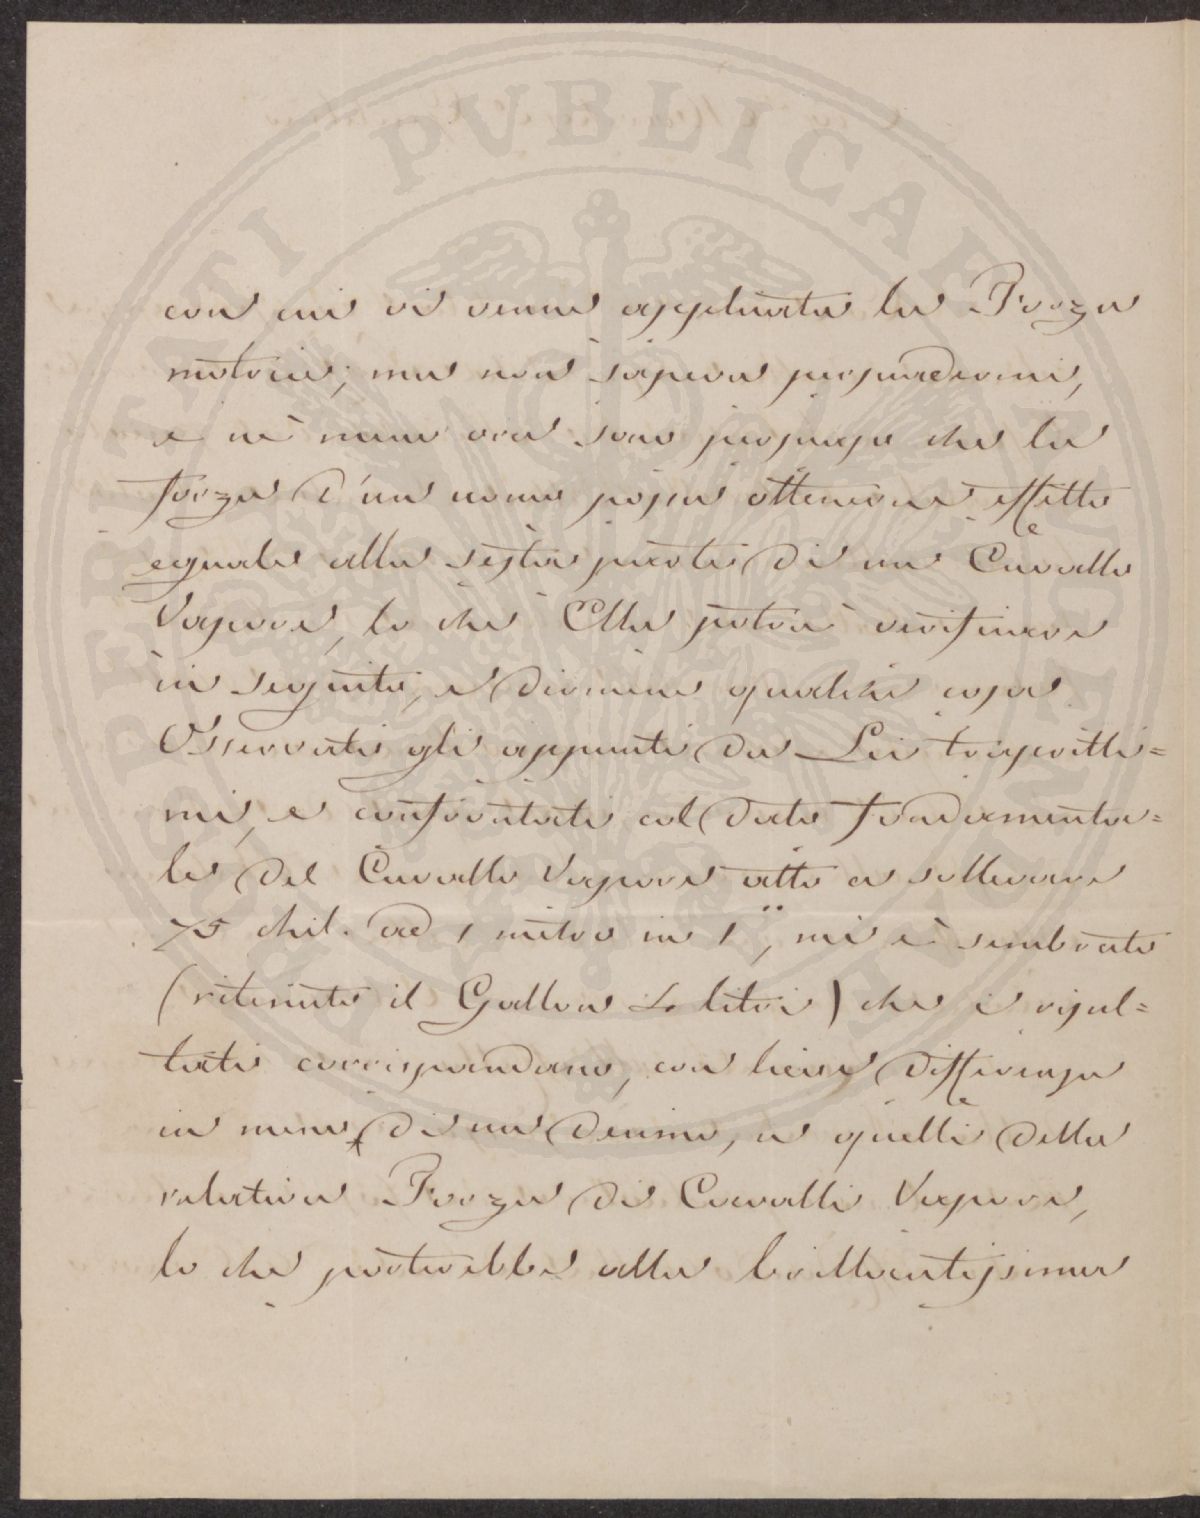 PERITATI PVBLICAE
con cui vi venne applicata la Forza
motrice; ma non sapeva persuadermi,
e nè meno ora sono persuaso che la
forza d'un uomo possa ottenerne effetto
eguale alla sesta parte di un Cavallo
Vapore, lo che Ella potrà verificare
in seguito, e dirmene qualche cosa.
Osservati gli appunti da Lei trasmessi=
mi, e confrontati col dato fondamenta=
le del Cavallo Vapore atto a sollevare
75 chil. ad 1 metro in 1", mi è sembrato
(ritenuto il Gallon 4 litri) che i risul=
tati corrispondano, con lieve differenza
in meno di un decimo, a quelli della
relativa Forza di Cavalli Vapore,
lo che porterebbe alla brillantissima